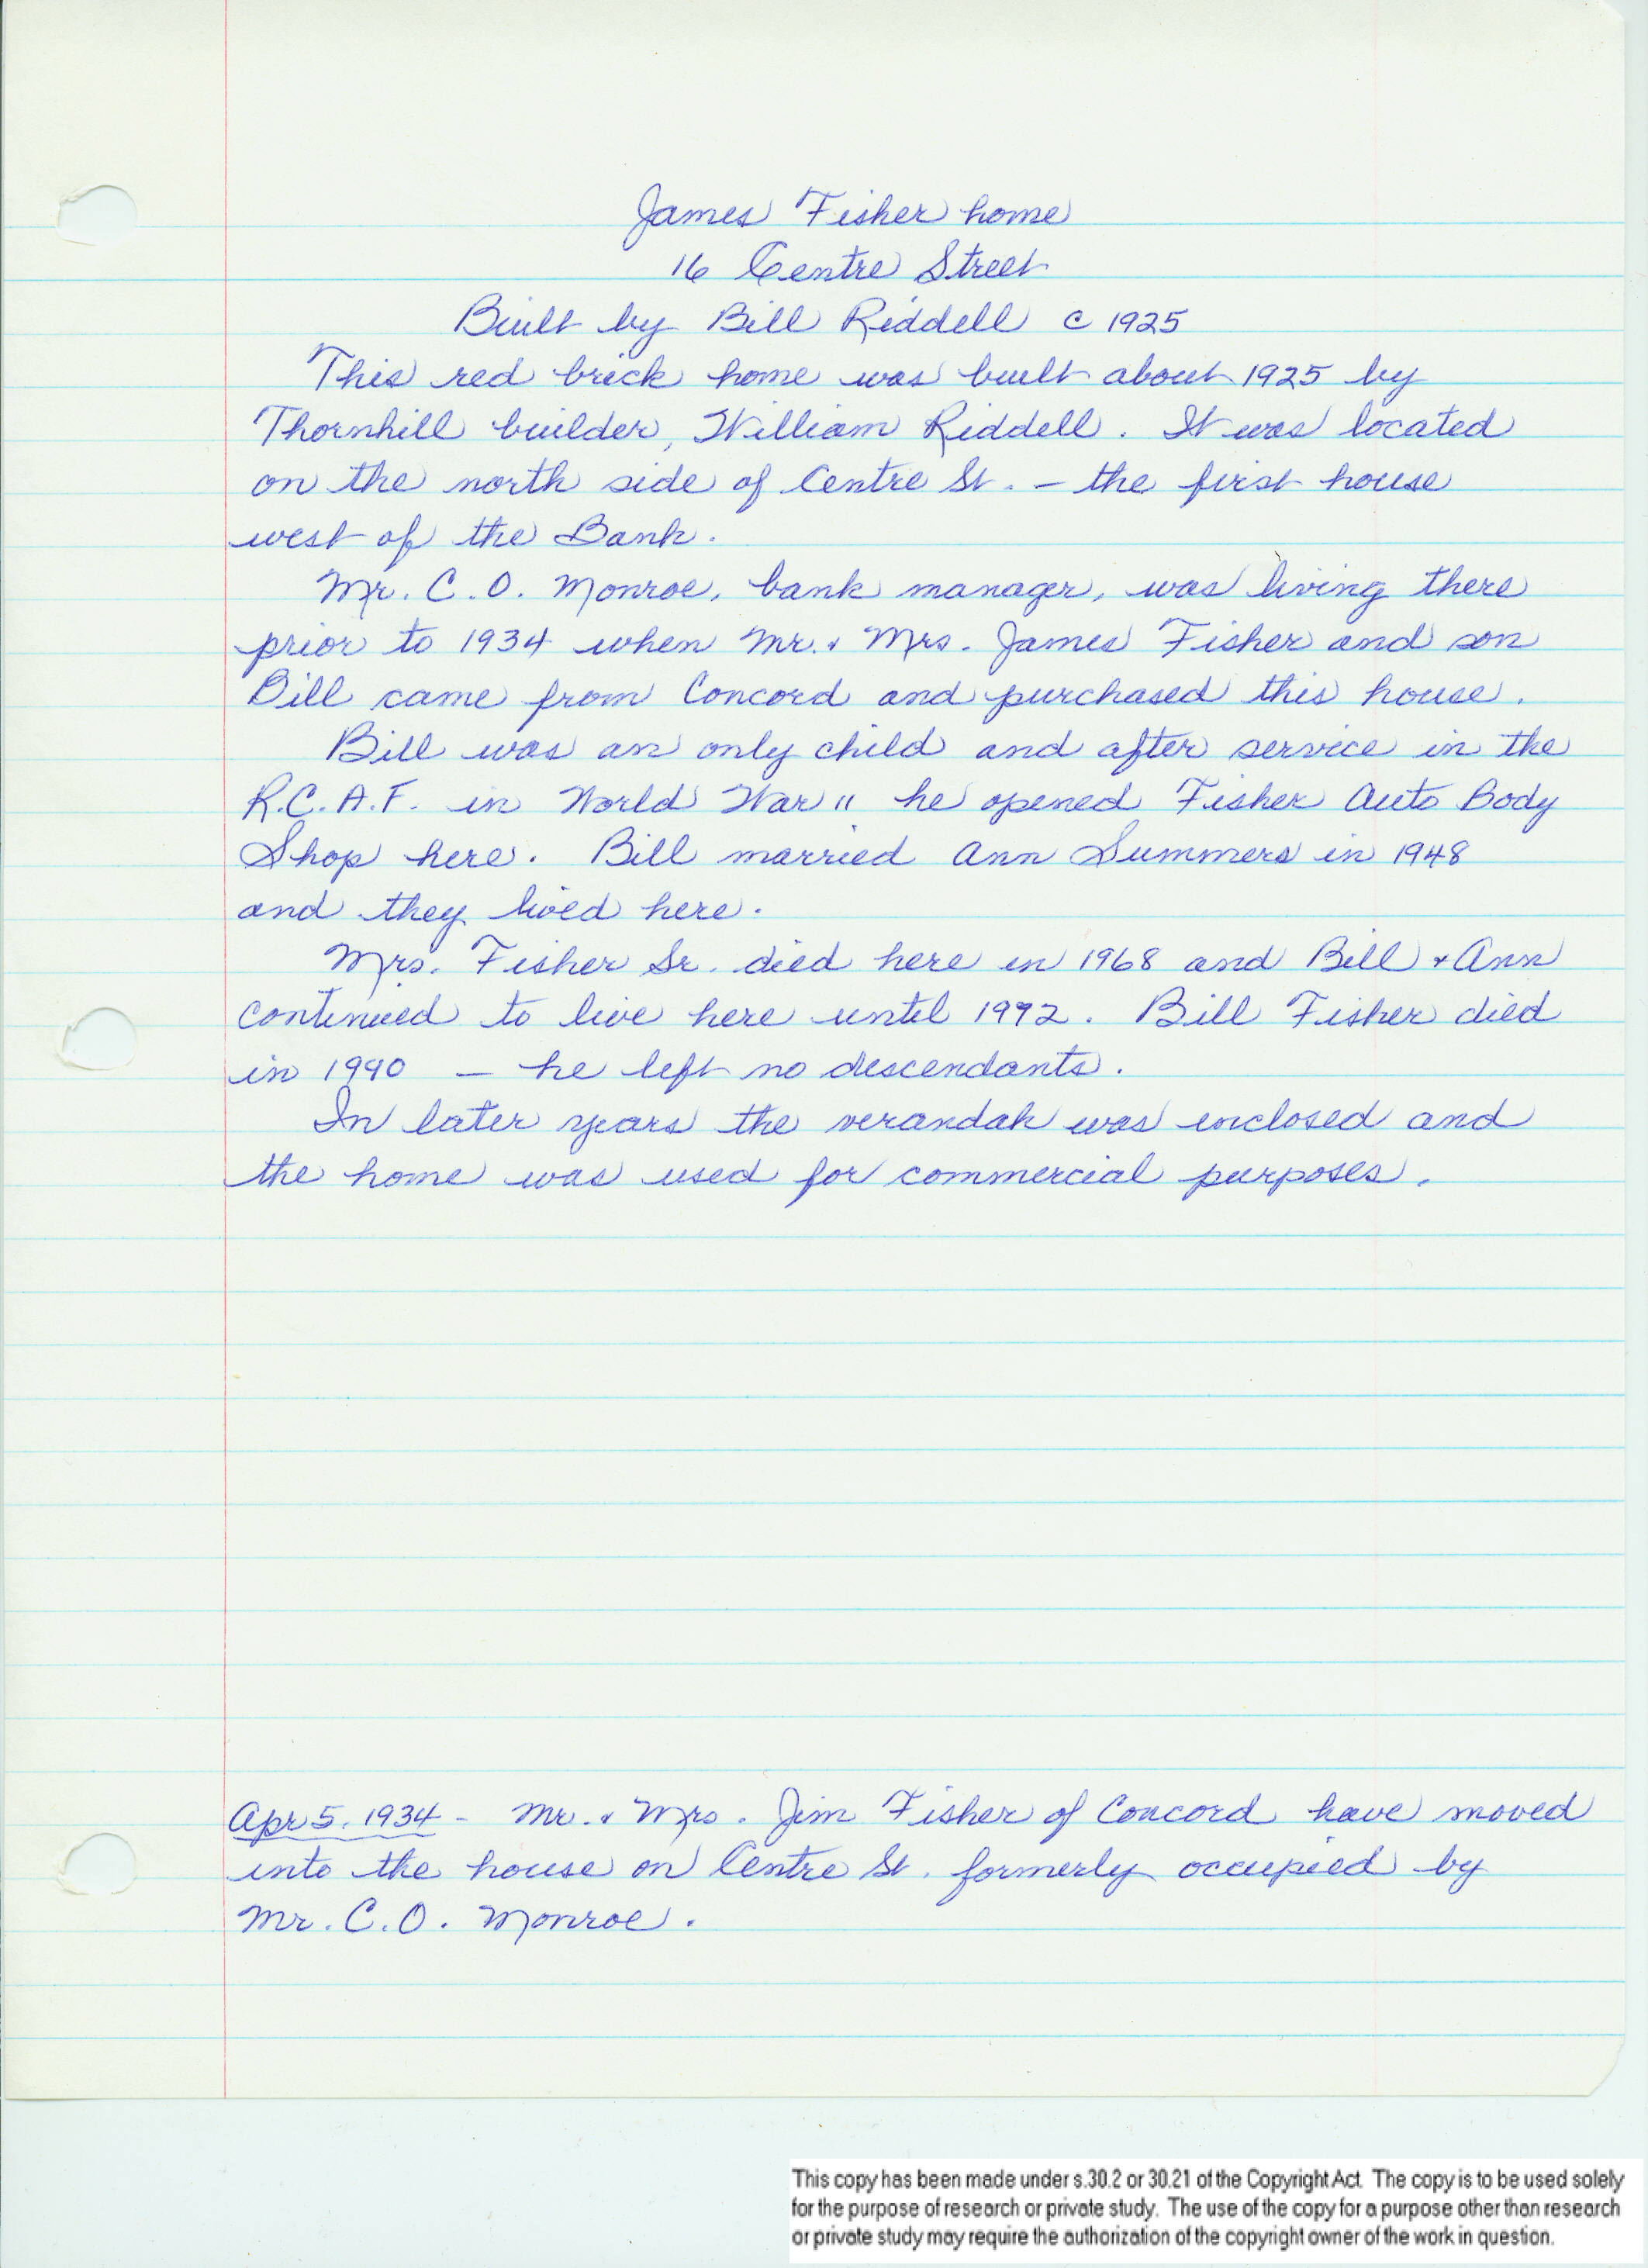 James Fisher home
16 Centre Street
Built by Bill Riddell c 1925
This red brick home was built about 1925 by
Thornhill builder, William Riddell. It was located
on the north side of Centre St. - the first house
west of the Bank.
Mr. C. O. Monroe, bank manager, was living there
prior to 1934 when Mr. & Mrs. James Fisher and son
Bill came from Concord and purchased this house.
Bill was an only child and after service in the
R.C.A.F. in World War 11 he opened Fisher Auto Body
Shop here. Bill married Ann Summers in 1948
and they lived here.
Mrs. Fisher Sr. died here in 1968 and Bill & Ann
continued to live here until 1972. Bill Fisher died
in 1990 - he left no descendants.
In later years the verandah was enclosed and
the home was used for commercial purposes.
Apr 5, 1934 - Mr. & Mrs. Jim Fisher of Concord have moved
into the house on Centre St. formerly occupied by
Mr. C. O. Monroe.
This copy has been made under s.30.2 or 30.21 of the Copyright Act. The copy is to be used solely
for the purpose of research or private study. The use of the copy for a purpose other than research
or private study may require the authorization of the copyright owner of the work in question.